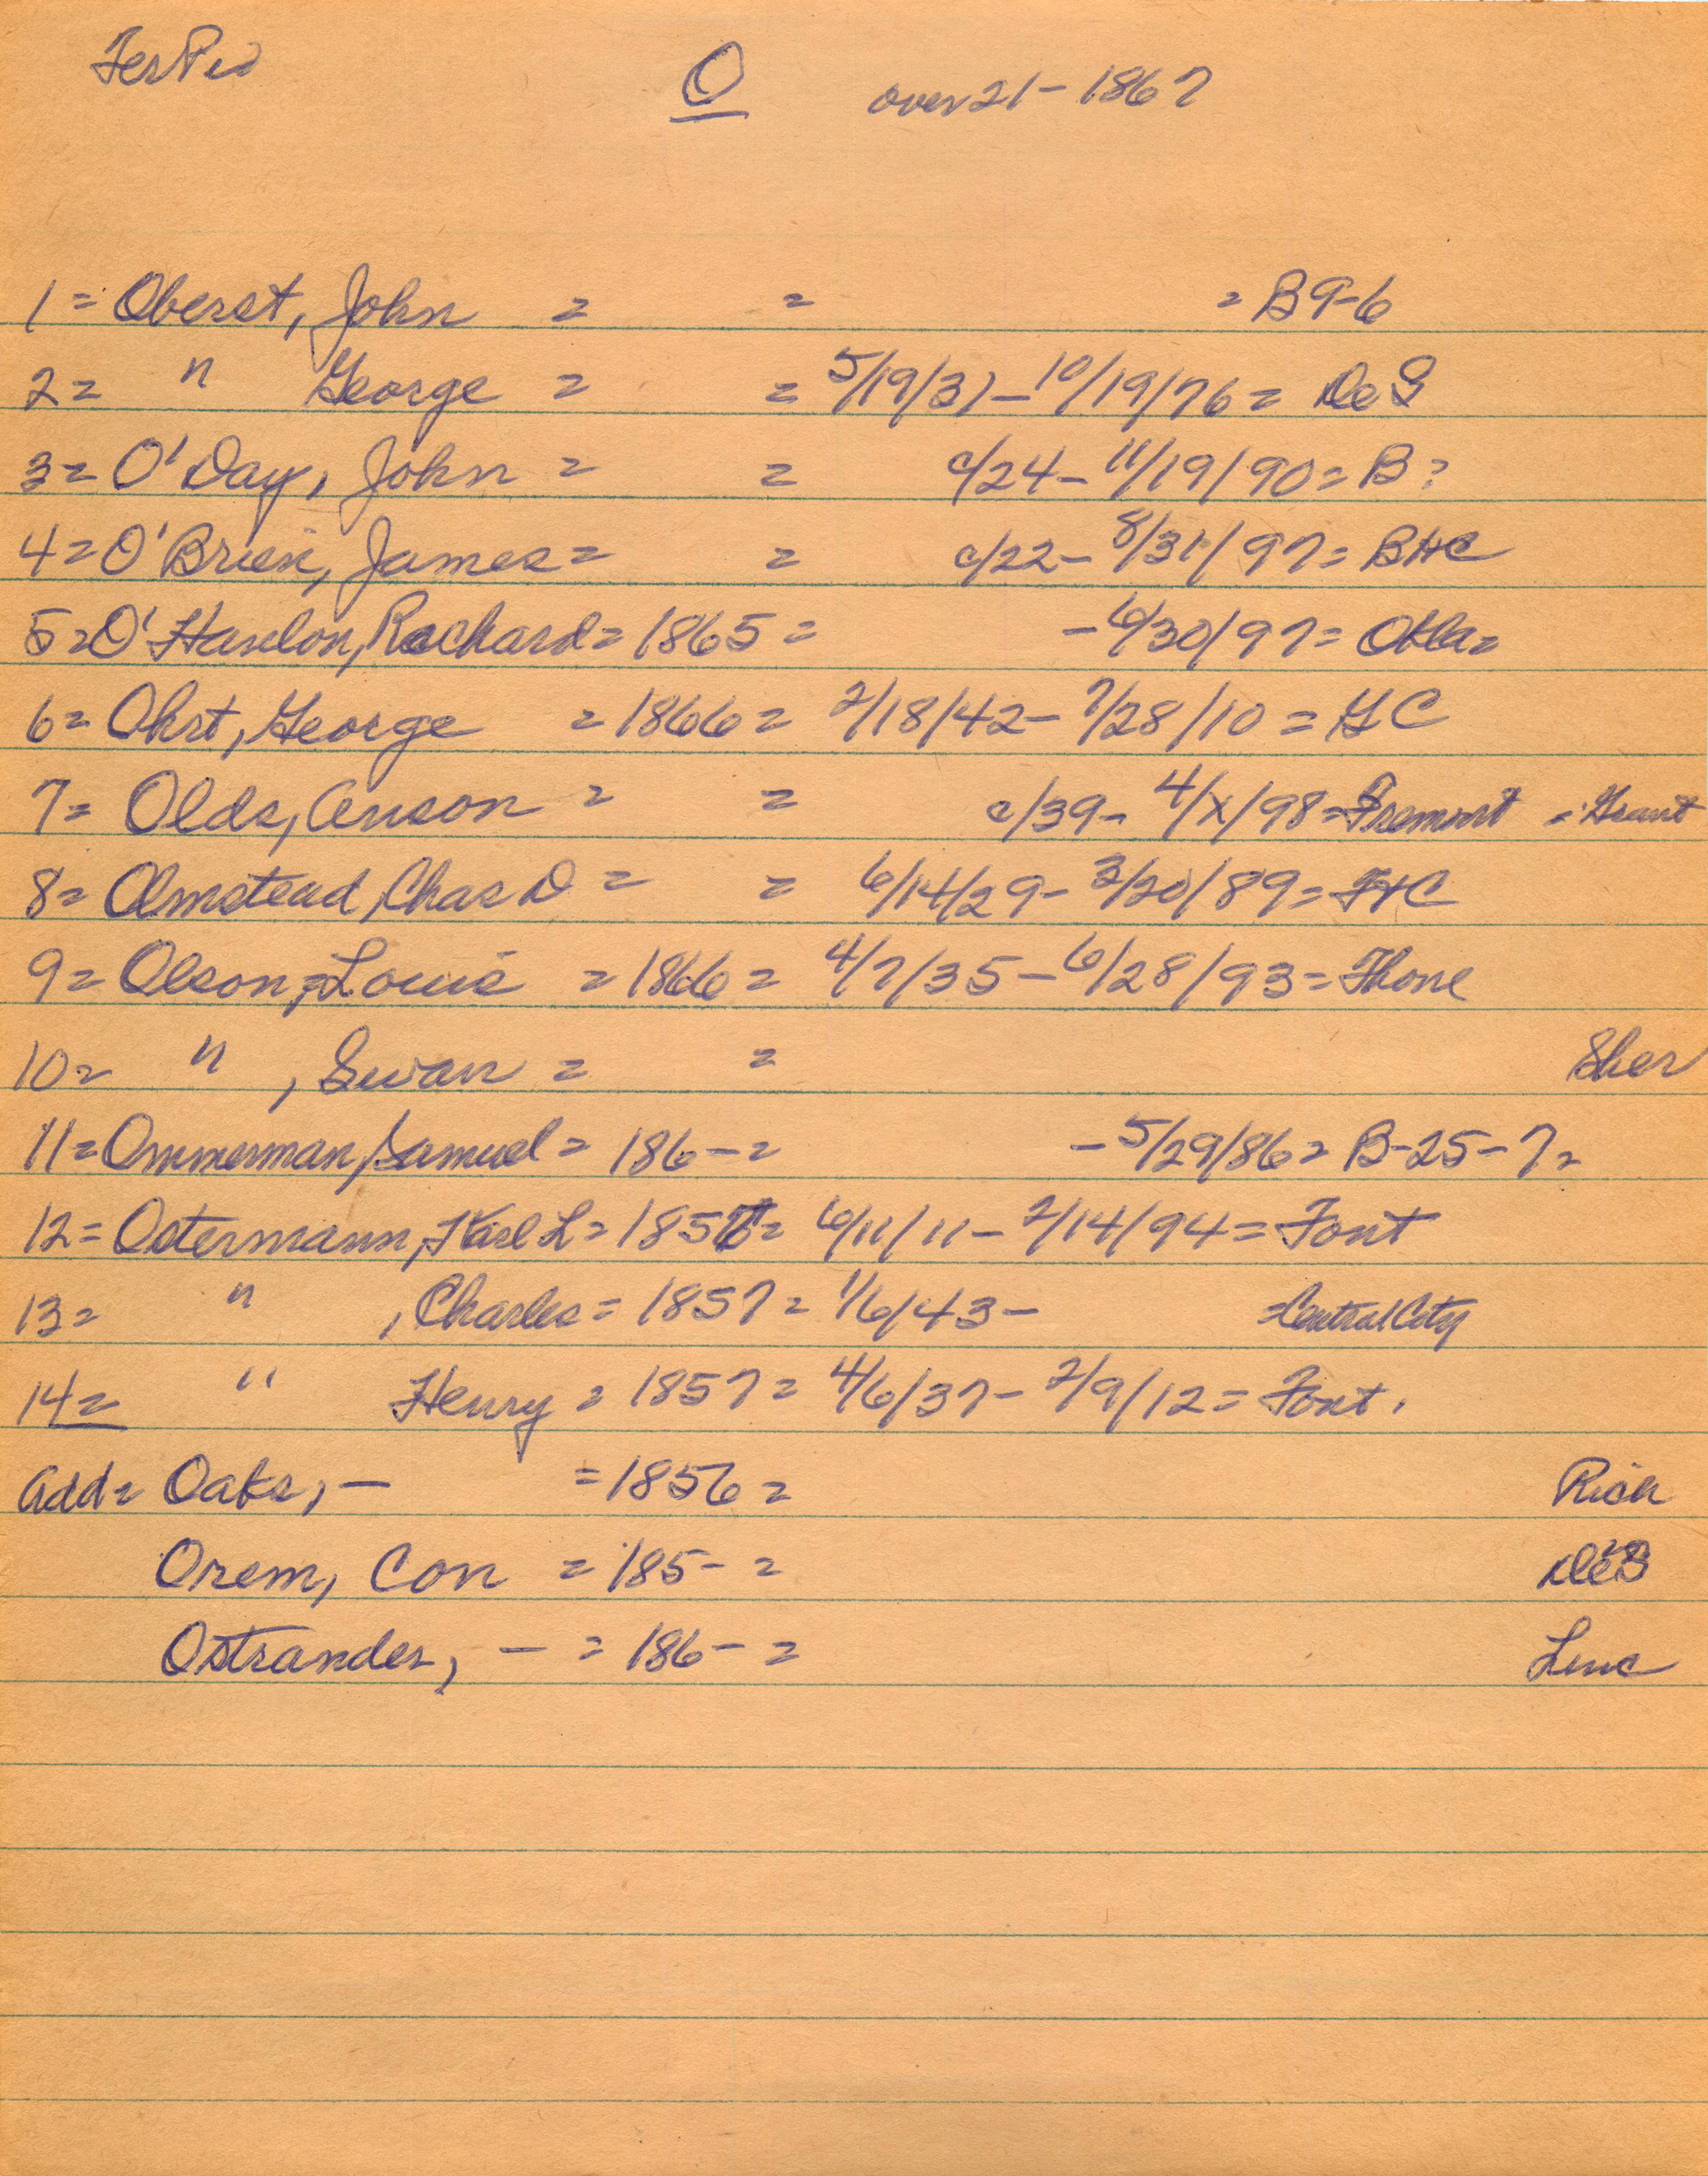 TerPio O over 21 - 1867
1 = Oberst, John = = = B9-6
2 = " George = = 5/19/37 - 10/19/76 = DeG
3 = O'Day, John = = c/24 - 11/19/90 = B?
4 = O'Brien, James = = c/22 - 8/31/97 = BHC
5 = O'Hanlon, Rachard = 1865 = - 6/30/97 = Okla =
6 = Ohrt, George = 1866 = 2/18/42 - 7/28/10 = GC
7 = Olds, Anson = = c/39 - 4/x/98 = Fremont = Grant
8 = Olmstead, Chas D = = 6/14/29 - 3/20/89 = FHC
9 = Olson, = Louis = 1866 = 4/7/35 - 6/28/93 = Fhone
10 = " , Swan = = Sher
11 = Ommerman, Samuel = 186- = - 5/29/86 = B-25-7 =
12 = Ostermann, Karl L = 1857 = 6/11/11 - 2/14/94 = Font
13 = " , Charles = 1857 = 1/6/43 - = Central City
14 = " Henry = 1857 = 4/6/37 - 2/9/12 = Font.
Add = Oaks, - = 1856 = Rich
Orem, Con = 185- = DeB
Ostrander, - = 186- = Linc